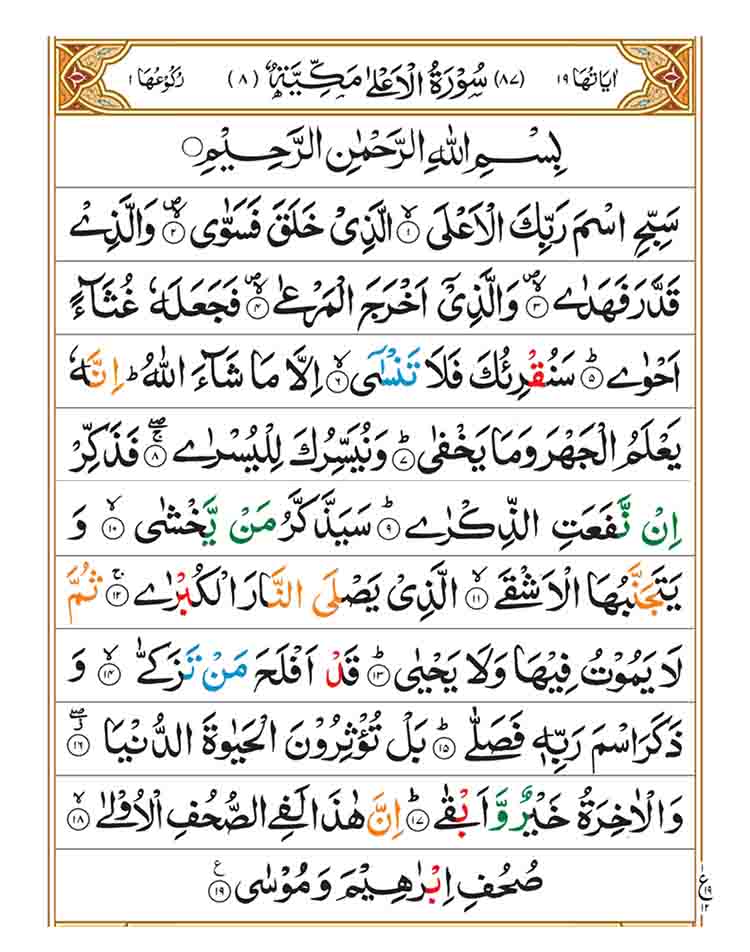 اٰیَاتُهَا ١٩ (٨٧) سُوْرَةُ الْاَعْلٰی مَكِّیَّةٌ (٨) رُكُوْعُهَا ١
بِسْمِ اللّٰهِ الرَّحْمٰنِ الرَّحِیْمِ
سَبِّحِ اسْمَ رَبِّكَ الْاَعْلَى ۙ﴿١﴾ الَّذِیْ خَلَقَ فَسَوّٰى ۪ۙ﴿٢﴾ وَالَّذِیْ
قَدَّرَ فَهَدٰى ۪ۙ﴿٣﴾ وَالَّذِیْۤ اَخْرَجَ الْمَرْعٰى ۪ۙ﴿٤﴾ فَجَعَلَهٗ غُثَآءً
اَحْوٰى ؕ﴿٥﴾ سَنُقْرِئُكَ فَلَا تَنْسٰۤى ۙ﴿٦﴾ اِلَّا مَا شَآءَ اللّٰهُ ؕ اِنَّهٗ
یَعْلَمُ الْجَهْرَ وَمَا یَخْفٰى ؕ﴿٧﴾ وَنُیَسِّرُكَ لِلْیُسْرٰى ۚۖ﴿٨﴾ فَذَكِّرْ
اِنْ نَّفَعَتِ الذِّكْرٰى ؕ﴿٩﴾ سَیَذَّكَّرُ مَنْ یَّخْشٰى ۙ﴿١٠﴾ وَ
یَتَجَنَّبُهَا الْاَشْقَى ۙ﴿١١﴾ الَّذِیْ یَصْلَى النَّارَ الْكُبْرٰى ۚ﴿١٢﴾ ثُمَّ
لَا یَمُوْتُ فِیْهَا وَلَا یَحْیٰى ؕ﴿١٣﴾ قَدْ اَفْلَحَ مَنْ تَزَكّٰى ۙ﴿١٤﴾ وَ
ذَكَرَ اسْمَ رَبِّهٖ فَصَلّٰى ؕ﴿١٥﴾ بَلْ تُؤْثِرُوْنَ الْحَیٰوةَ الدُّنْیَا ۖ﴿١٦﴾
وَالْاٰخِرَةُ خَیْرٌ وَّاَبْقٰى ؕ﴿١٧﴾ اِنَّ هٰذَا لَفِی الصُّحُفِ الْاُوْلٰى ۙ﴿١٨﴾
صُحُفِ اِبْرٰهِیْمَ وَمُوْسٰى ﴿١٩﴾ع
١
ع ١٩
١٢